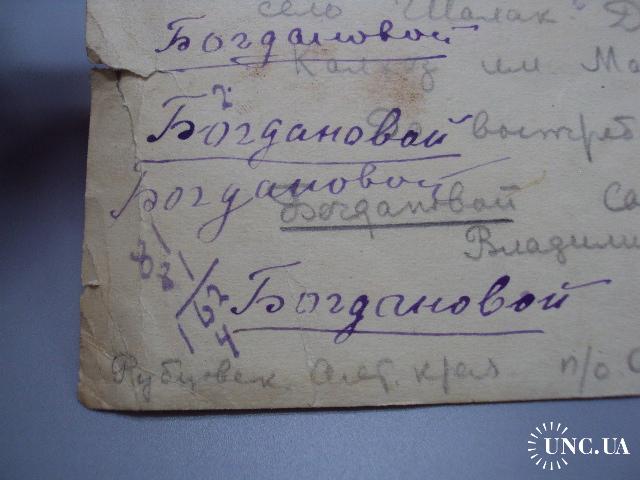 село "Шалак"
Богдановой
Колхоз им Ма
Богдановой
востреб
Богдановой
Богдановой Са
Владими
Богдановой
Рубцовск Алт. края п/о С
UNC.UA